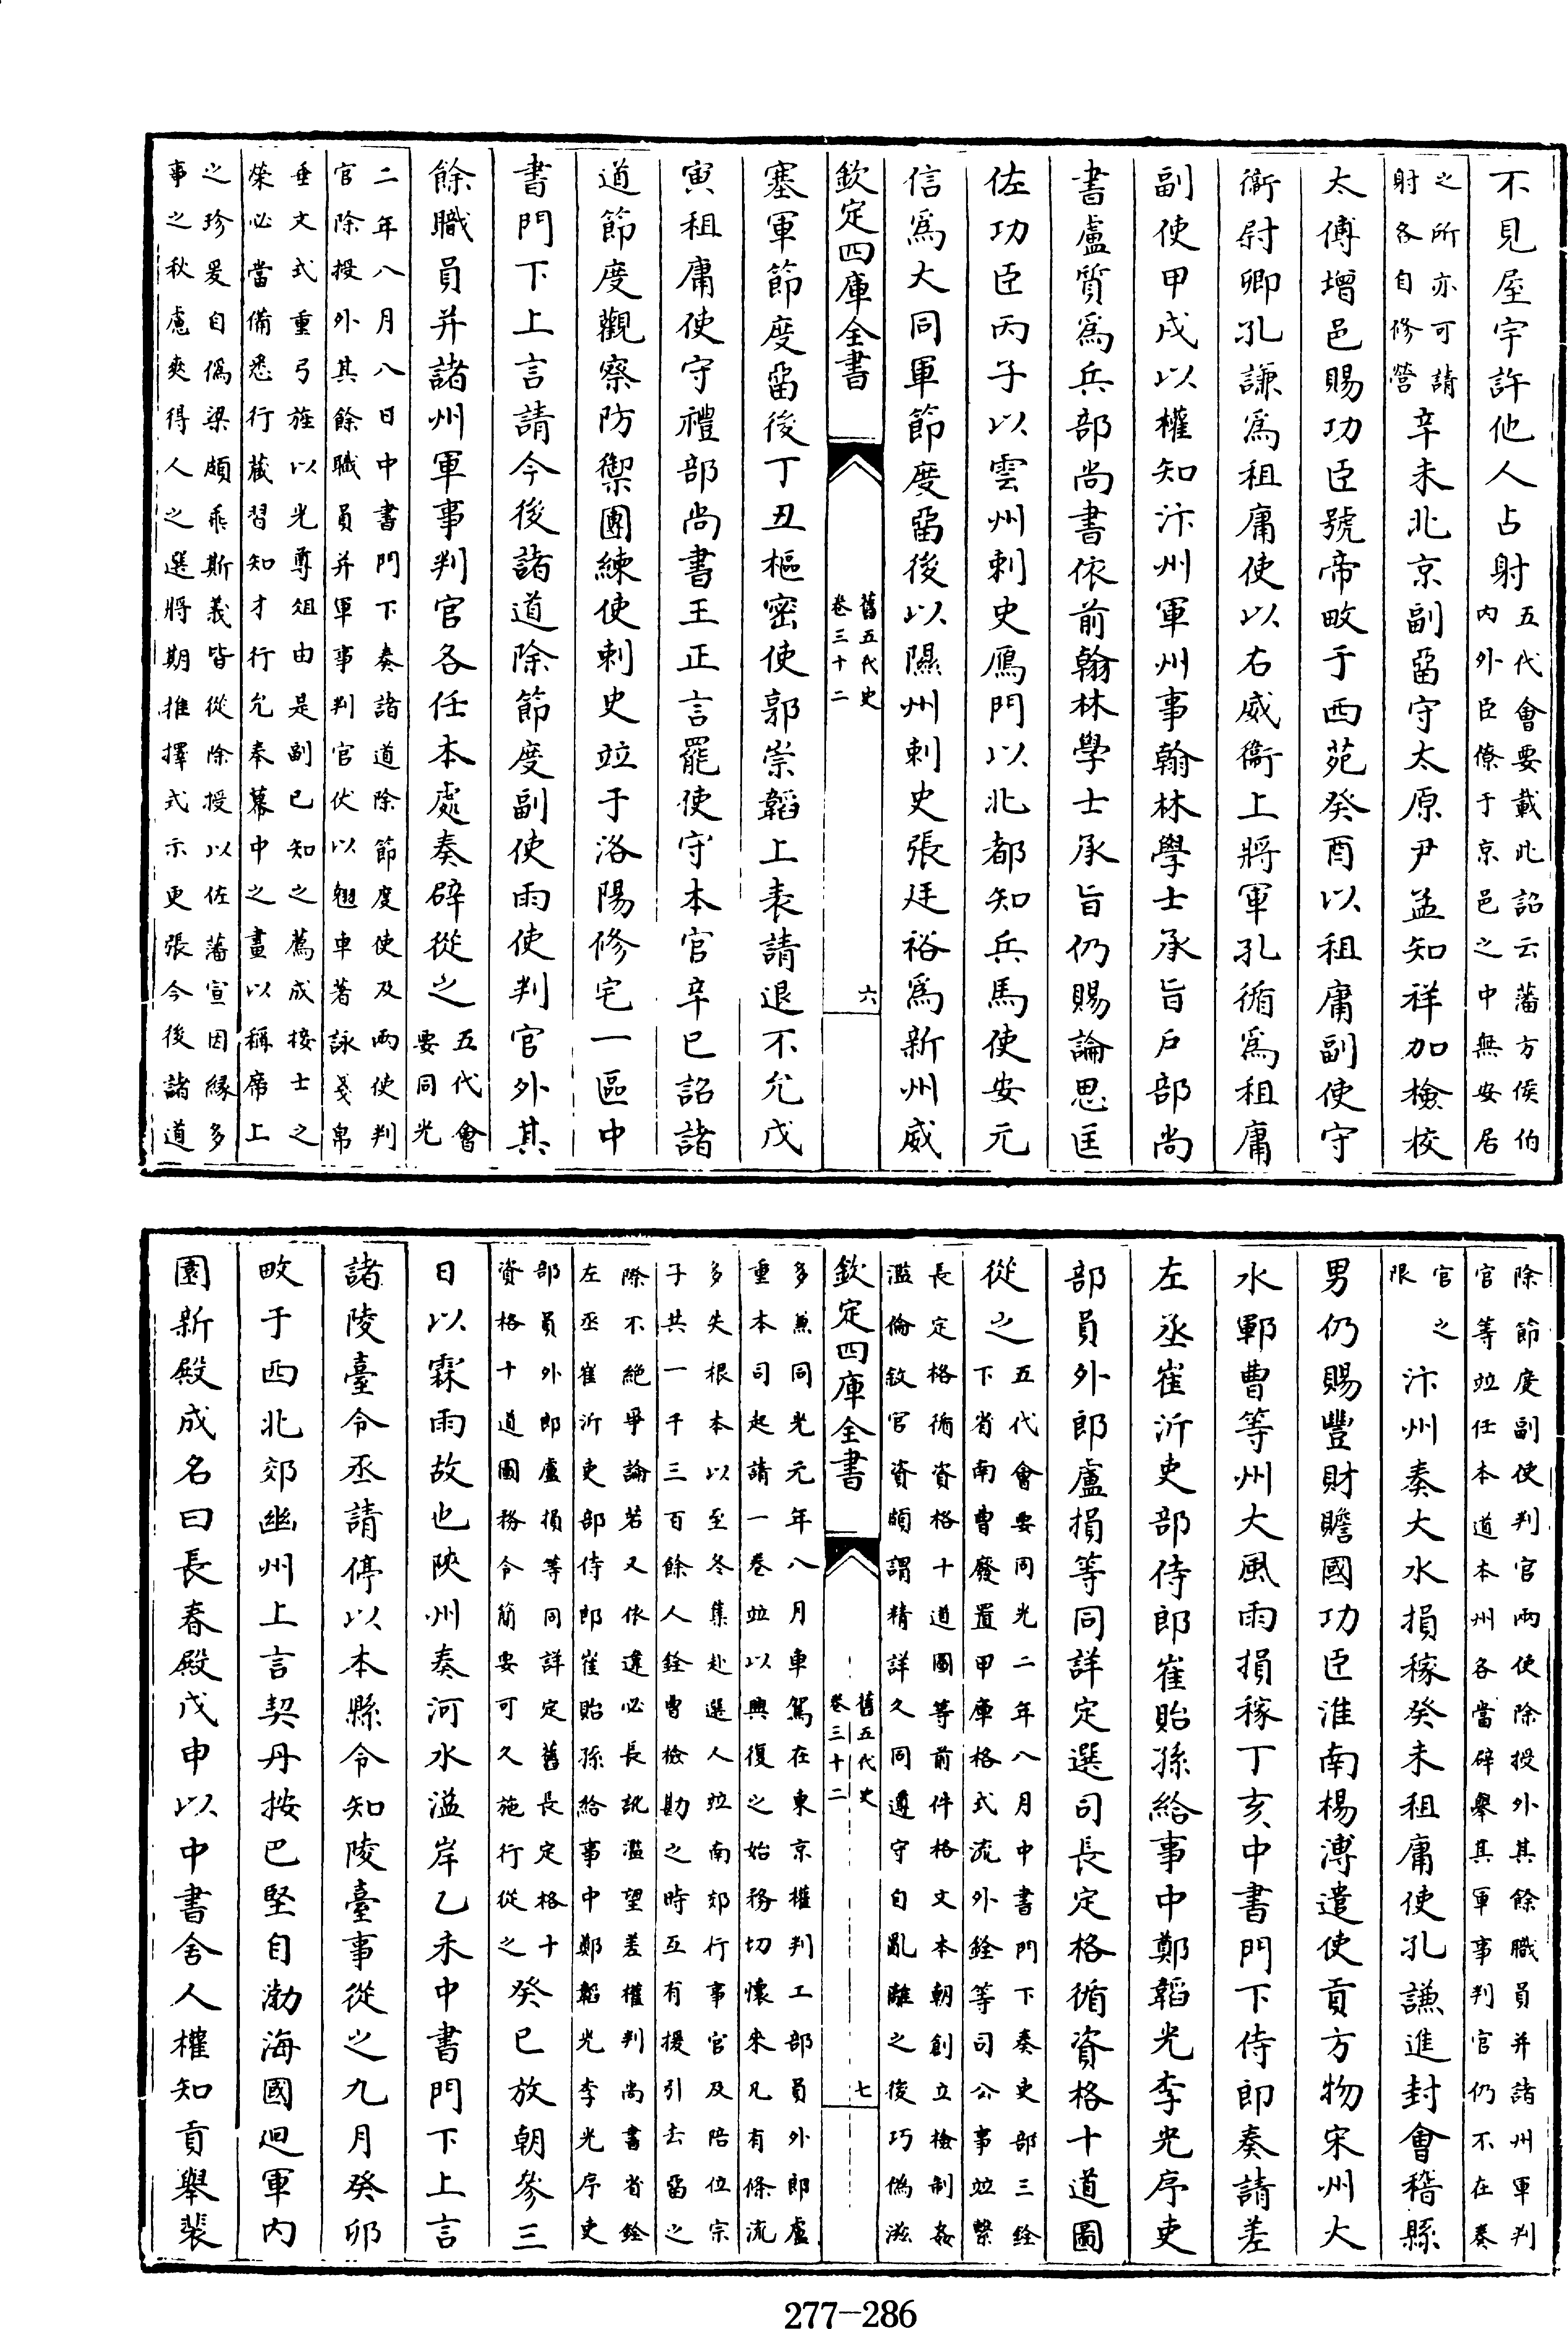 不見屋宇許他人占射五代會要載此詔云藩方侯伯内外臣僚于京邑之中無安居
之所亦可請射各自修營辛未北京副留守太原尹孟知祥加檢校
太傅增邑賜功臣號帝畋于西苑癸酉以租庸副使守
衞尉卿孔謙爲租庸使以右威衞上將軍孔循爲租庸
副使甲戌以權知汴州軍州事翰林學士承旨戶部尚
書盧質爲兵部尚書依前翰林學士承旨仍賜論思匡
佐功臣丙子以雲州刺史鴈門以北都知兵馬使安元
信爲大同軍節度留後以隰州刺史張廷裕爲新州威
欽定四庫全書 舊五代史卷三十二 六
塞軍節度留後丁丑樞密使郭崇韜上表請退不允戊
寅租庸使守禮部尚書王正言罷使守本官辛巳詔諸
道節度觀察防禦團練使刺史竝于洛陽修宅一區中
書門下上言請今後諸道除節度副使兩使判官外其
餘職員并諸州軍事判官各任本處奏辟從之五代會要同光
二年八月八日中書門下奏諸道除節度使及兩使判官除授外其餘職員并軍事判官伏以翹車著詠戔帛
垂文式重弓旌以光尊俎由是副已知之薦成接士之榮必當備悉行藏習知才行允奉幕中之畫以稱席上
之珍爰自僞梁頗乖斯義皆從除授以佐藩宣因緣多事之秋慮爽得人之選將期推擇式示更張今後諸道
除節度副使判官兩使除授外其餘職員并諸州軍判官等竝任本道本州各當辟舉其軍事判官仍不在奏
官之限汴州奏大水損稼癸未租庸使孔謙進封會稽縣
男仍賜豐財贍國功臣淮南楊溥遣使貢方物宋州大
水鄆曹等州大風雨損稼丁亥中書門下侍郎奏請差
左丞崔沂吏部侍郎崔貽孫給事中鄭韜光李光序吏
部員外郎盧損等同詳定選司長定格循資格十道圖
從之五代會要同光二年八月中書門下奏吏部三銓下省南曹廢置甲庫格式流外銓等司公事竝繫
長定格循資格十道圖等前件格文本朝創立檢制姦濫倫敘官資頗謂精詳久同遵守自亂離之後巧僞滋
欽定四庫全書 舊五代史卷三十二 七
多兼同光元年八月車駕在東京權判工部員外郎盧重本司起請一卷竝以興復之始務切懷來凡有條流
多失根本以至冬集赴選人竝南郊行事官及陪位宗子共一千三百餘人銓曹檢勘之時互有援引去留之
除不絕爭論若又依違必長訛濫望差權判尚書省銓左丞崔沂吏部侍郎崔貽孫給事中鄭韜光李光序吏
部員外郎盧損等同詳定舊長定格十資格十道圖務令簡要可久施行從之癸巳放朝參三
日以霖雨故也陝州奏河水溢岸乙未中書門下上言
諸陵臺令丞請停以本縣令知陵臺事從之九月癸卯
畋于西北郊幽州上言契丹按巴堅自渤海國迴軍内
園新殿成名曰長春殿戊申以中書舍人權知貢舉裴
277-286